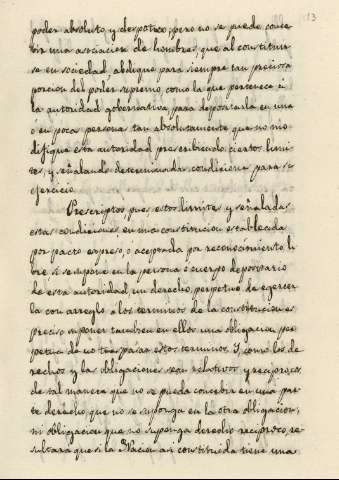 13
poder absoluto y despotico, pero no se puede conce
bir una asociacion de hombres, que al constituir
se en sociedad, abdique para siempre tan preciosa
porcion del poder supremo, como la que pertenece á
la autoridad gobernativa, para depositarla en una
o en pocas personas tan absolutamente que no mo
difique esta autoridad prescribiendo ciertos limi
tes, y señalando determinadas condiciones para su
ejercicio.
Prescriptos pues estos limites, y señaladas
estas condiciones en una constitucion establecida
por pacto expreso, o aceptada por reconocimiento li
bre si se supone en la persona o cuerpo depositario
de esta autoridad, un derecho perpetuo de egercer
la con arreglo a los terminos de la constitucion es
preciso suponer tambien en ellos una obligacion per
petua de no traspasar estos terminos. Y, como los de
rechos y las obligaciones sean relativos y reciprocos
de tal manera que no se pueda concebir en una par
te derecho, que no se suponga en la otra obligacion,
ni obligacion que no suponga derecho reciproco, re
sultara que si la Nacion asi constituida tiene una